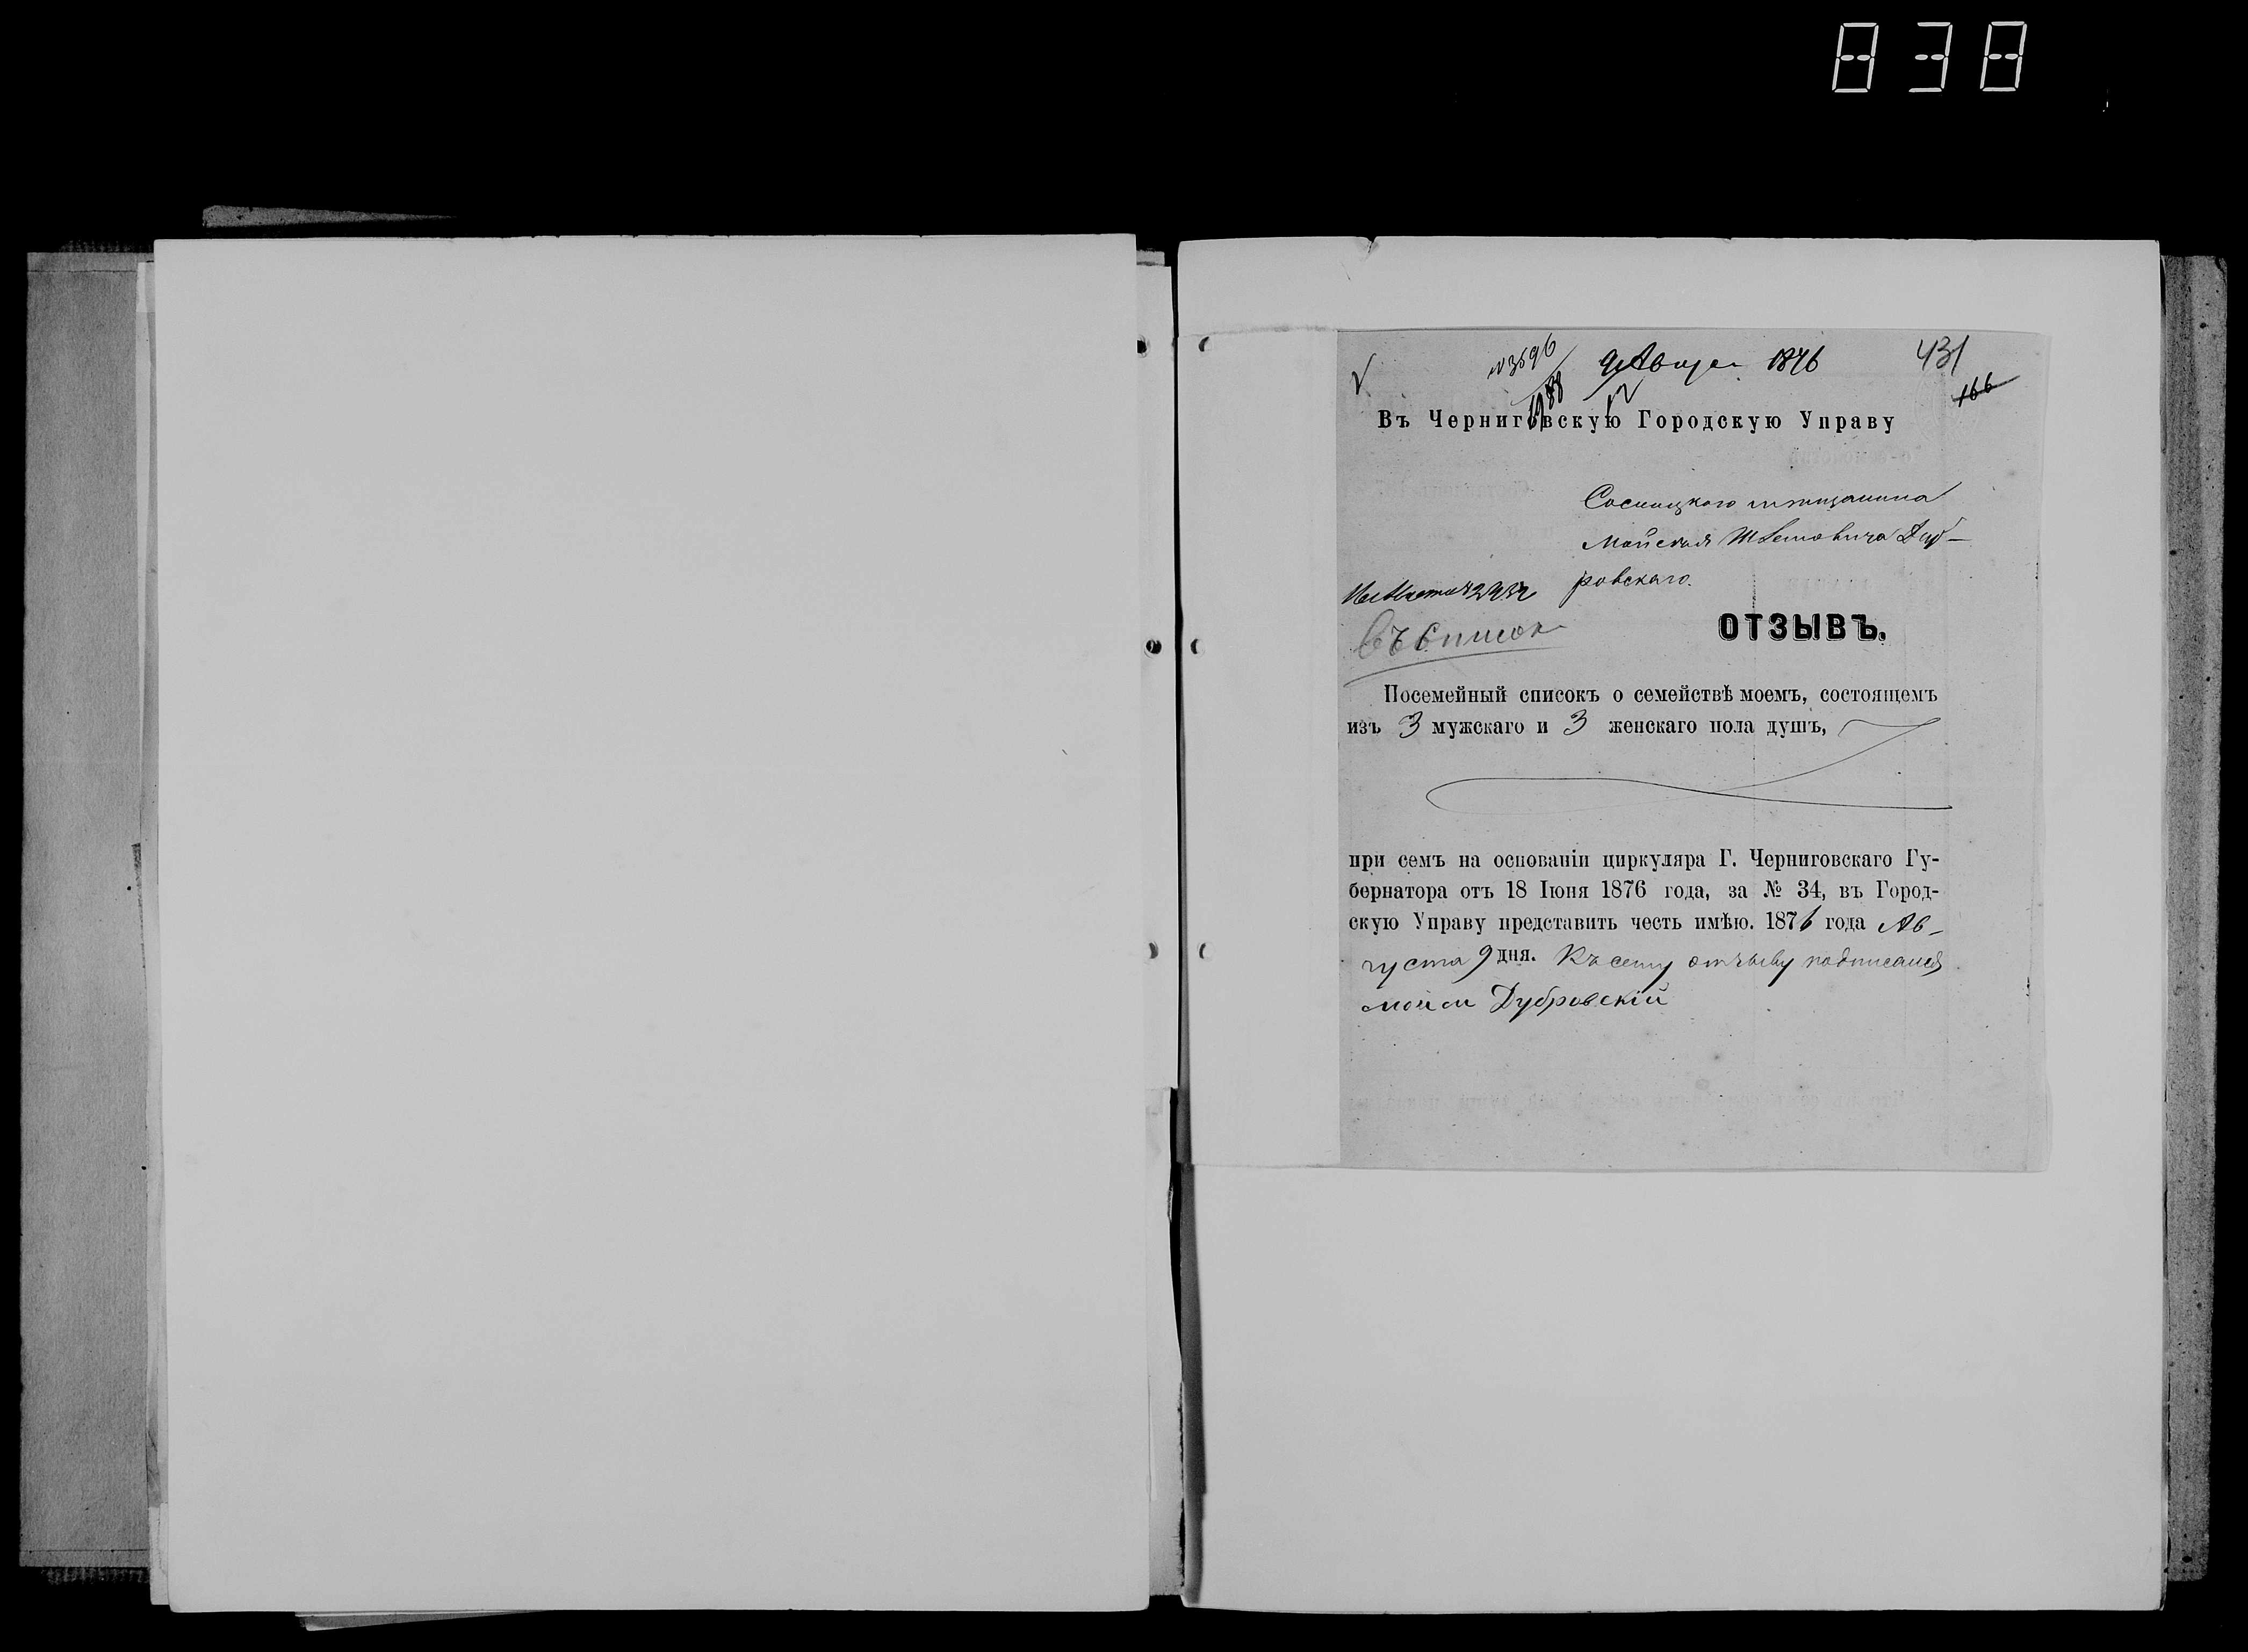 838
№ 3696 9 Августа 1876 431
1988 12 166
Въ Черниговскую Городскую Управу
Сосницкаго мѣщанина
Мойсея Шлемовича Дуб-
ровскаго.
ОТЗЫВЪ.
Въ Список
Посемейный списокъ о семействѣ моемъ, состоящемъ
изъ 3 мужскаго и 3 женскаго пола душъ,
при семъ на основаніи циркуляра Г. Черниговскаго Гу-
бернатора отъ 18 Іюня 1876 года, за № 34, въ Город-
скую Управу представить честь имѣю. 1876 года Ав-
густа 9 дня. Къ сему отзыву подписался
Дубровскій